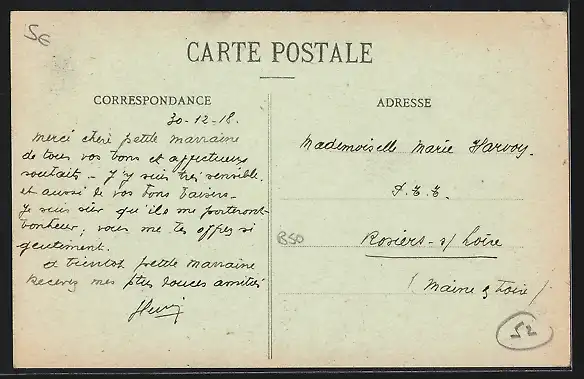 5E
CARTE POSTALE
CORRESPONDANCE
30-12-18.
Merci chère petite marraine
de tous vos bons et affectueux
souhaits - J'y suis très sensible.
et aussi à vos bons baisers -
Je suis sûr qu'ils me porteront
bonheur, vous me les offrez si
gentiment.
A bientôt petite marraine
Recevez mes plus douces amitiés
Henri
ADRESSE
Mademoiselle Marie Harvoy.
P.T.T.
Rosiers-s/ Loire
(Maine & Loire)
B50
52